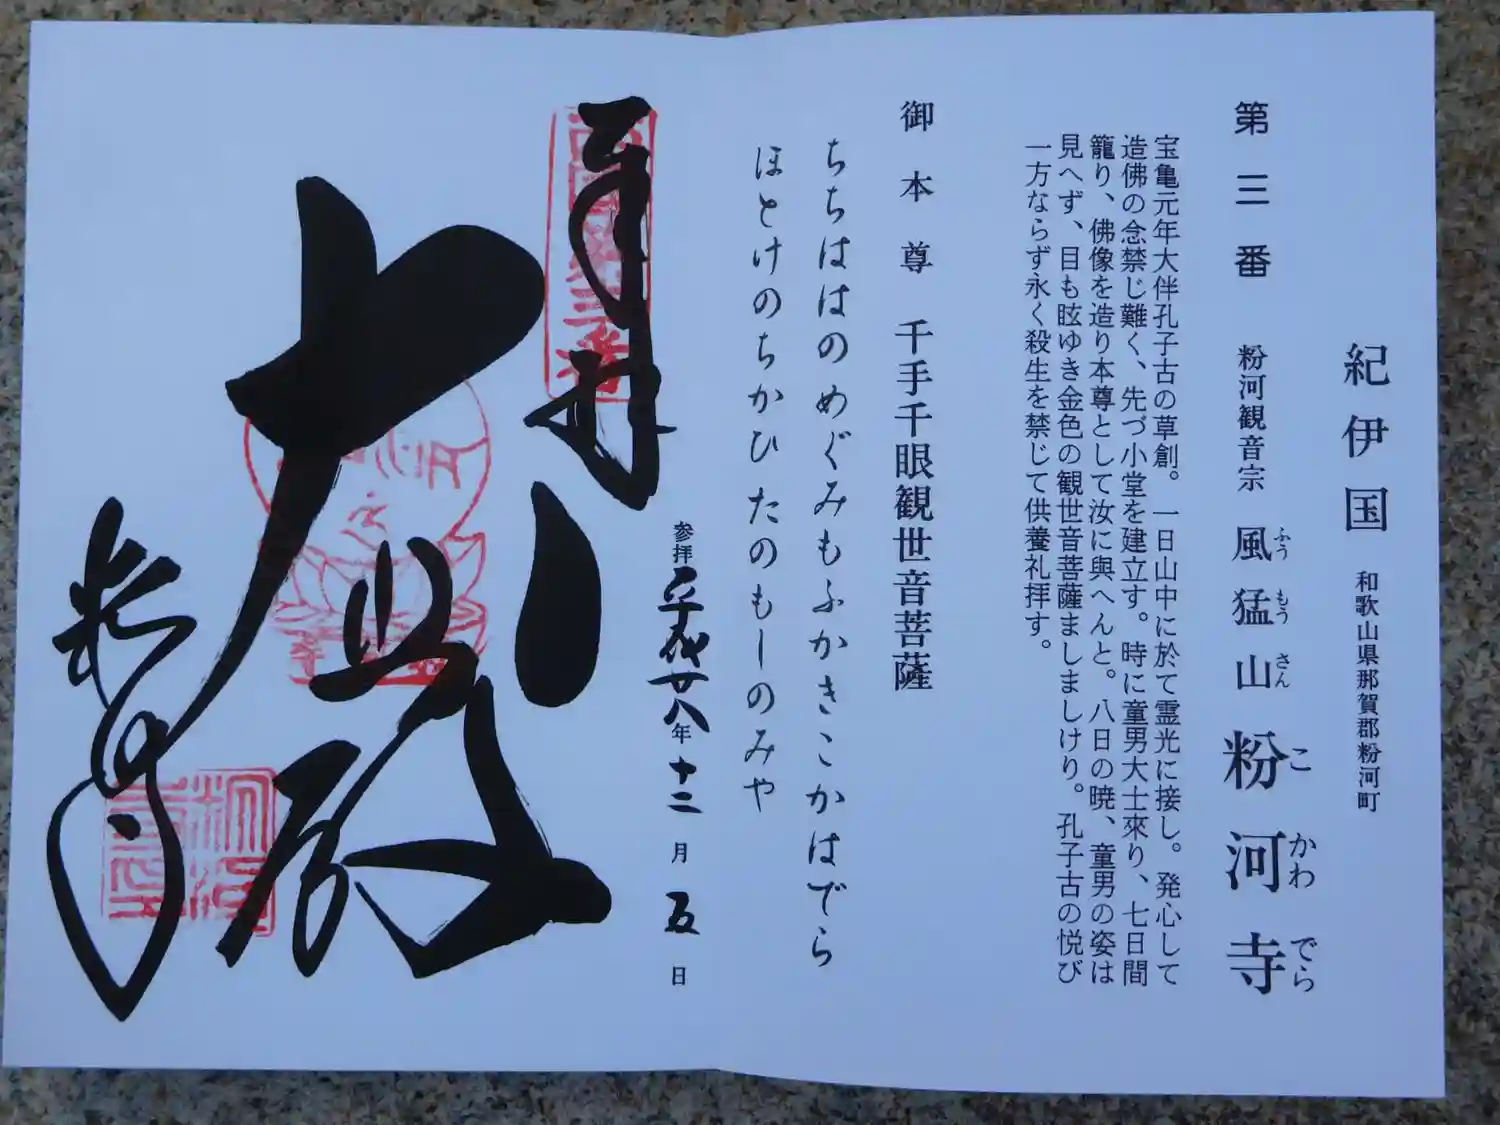 紀伊国 和歌山県那賀郡粉河町
第三番 粉河観音宗 風猛山 粉河寺
ふう もう さん こ かわ でら
宝亀元年大伴孔子古の草創。一日山中に於て霊光に接し。発心して
造佛の念禁じ難く、先づ小堂を建立す。時に童男大士來り、七日間
籠り、佛像を造り本尊として汝に與へんと。八日の暁、童男の姿は
見へず、目も眩ゆき金色の観世音菩薩ましましけり。孔子古の悦び
一方ならず永く殺生を禁じて供養礼拝す。
御本尊 千手千眼観世音菩薩
ちちははのめぐみもふかきこかはでら
ほとけのちかひたのもしのみや
参拝 平成廿八年十二月五日
奉拝
大悲殿
粉河寺
西国第三番